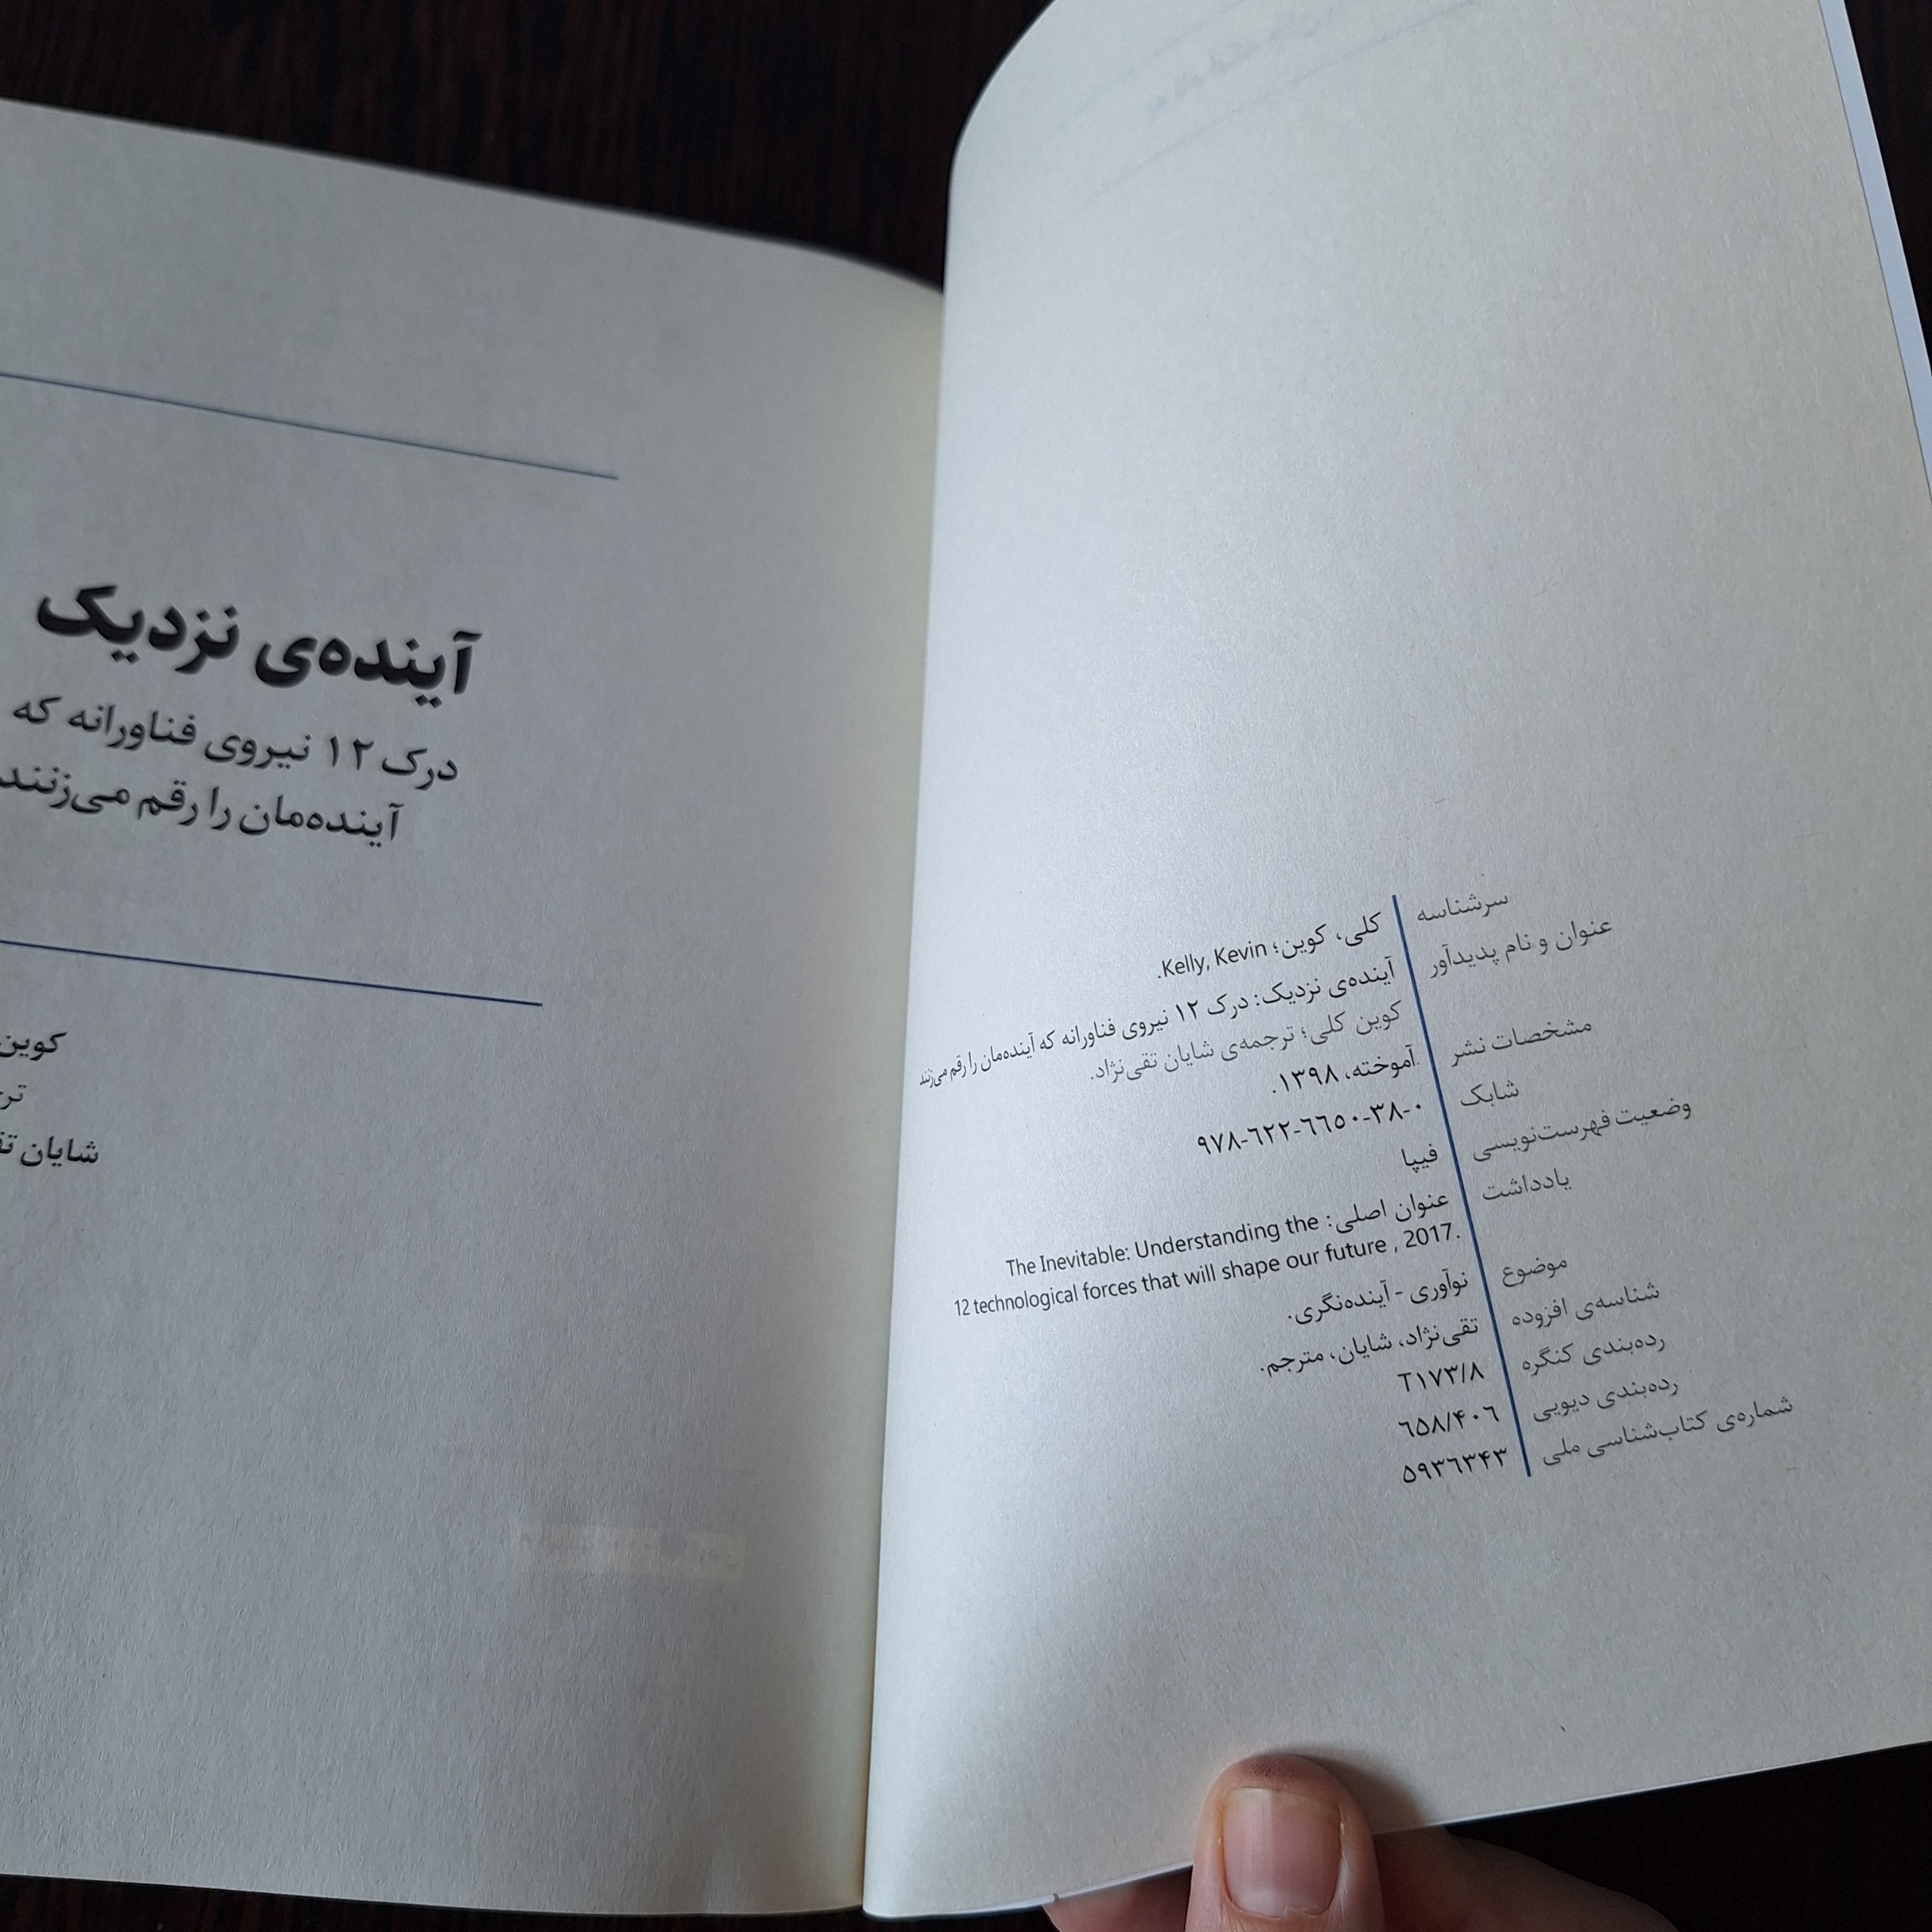 سرشناسه کلی، کوین؛ Kelly, Kevin.
عنوان و نام پدیدآور آینده‌ی نزدیک: درک ۱۲ نیروی فناورانه که آینده‌مان را رقم می‌زنند
کوین کلی؛ ترجمه‌ی شایان تقی‌نژاد.
مشخصات نشر آموخته، ۱۳۹۸.
شابک ۹۷۸-۶۲۲-۶۶۵۰-۳۸-۰
وضعیت فهرست‌نویسی فیپا
یادداشت عنوان اصلی: The Inevitable: Understanding the
12 technological forces that will shape our future , 2017.
موضوع نوآوری - آینده‌نگری.
شناسه‌ی افزوده تقی‌نژاد، شایان، مترجم.
رده‌بندی کنگره T۱۷۳/۸
رده‌بندی دیویی ۶۵۸/۴۰۶
شماره‌ی کتاب‌شناسی ملی ۵۹۳۶۳۴۳
آینده‌ی نزدیک
درک ۱۲ نیروی فناورانه که
آینده‌مان را رقم می‌زنند
کوین
شایان